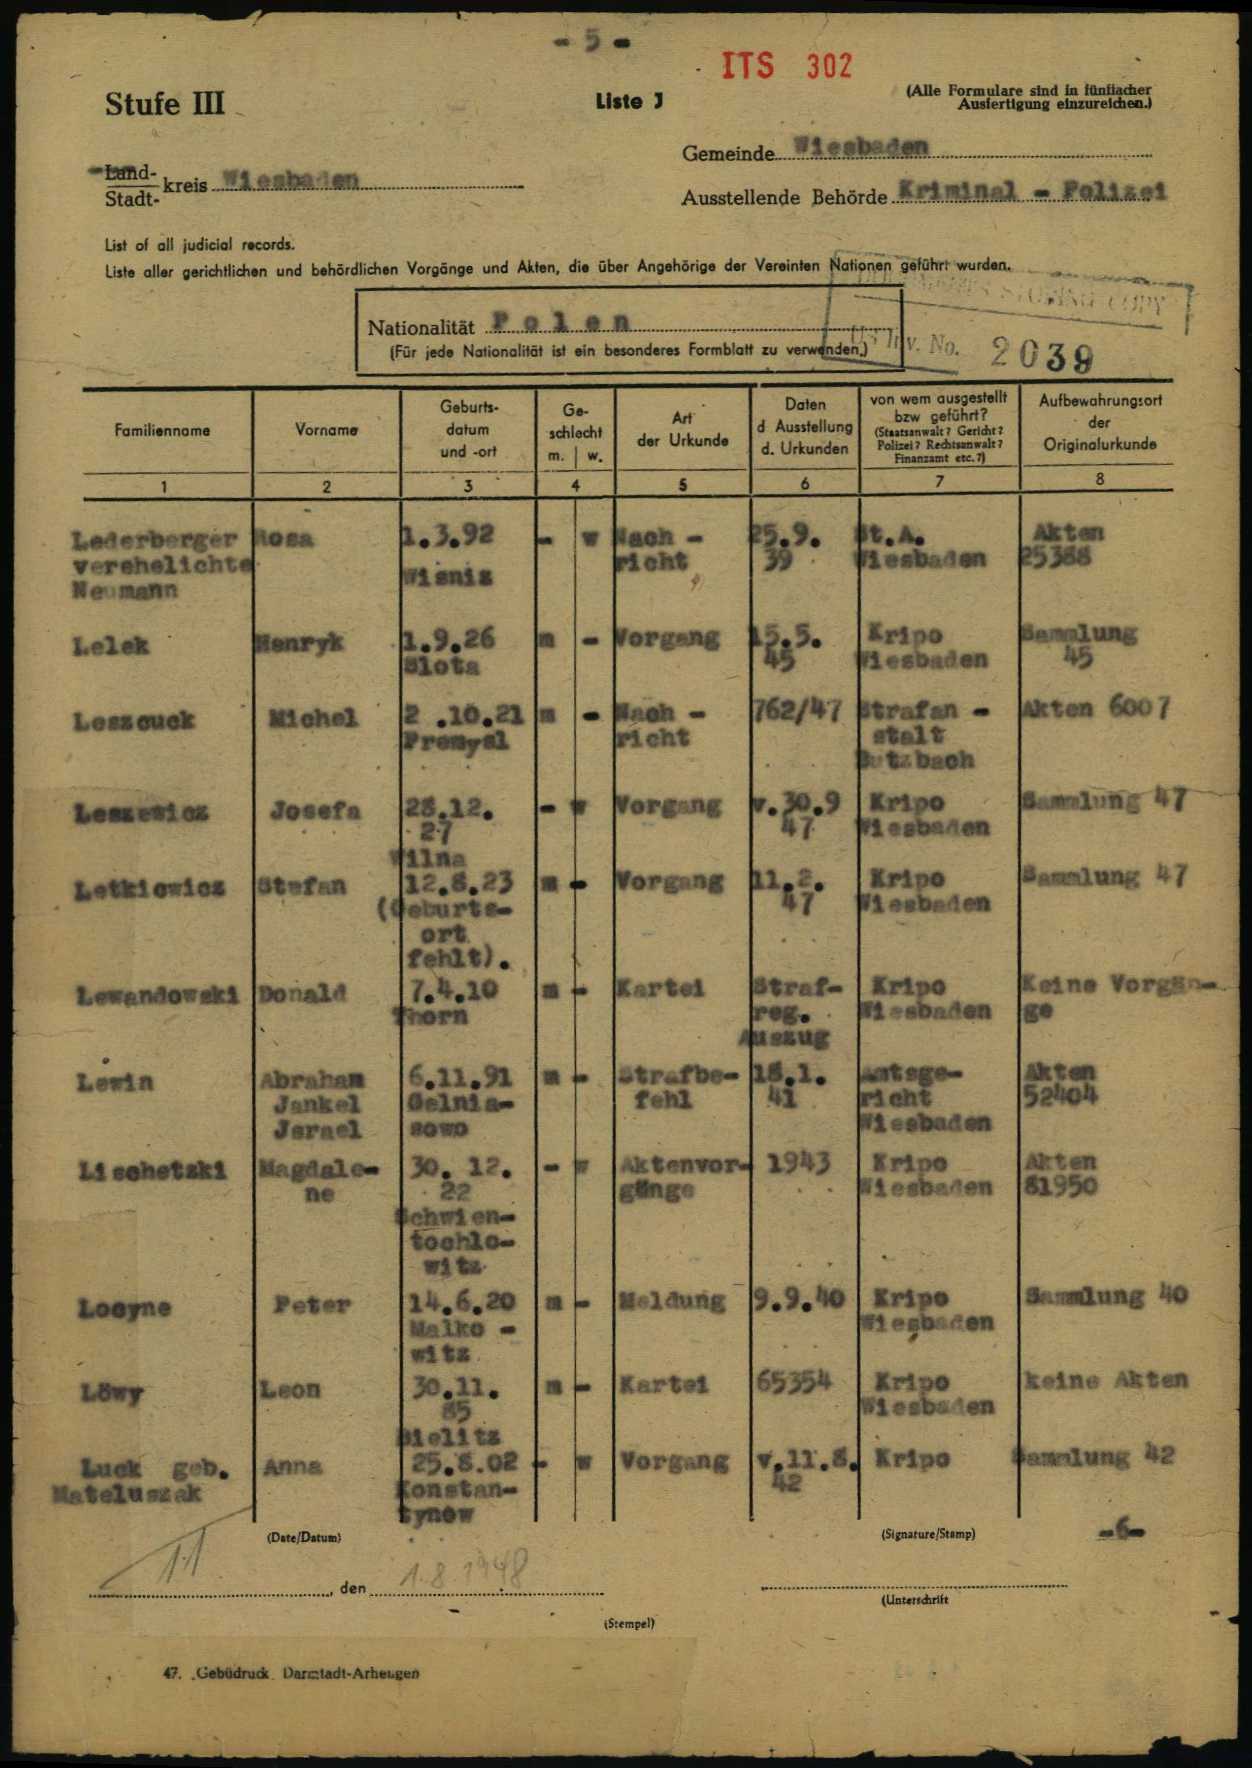 - 5 -
ITS 302
Stufe III
Liste J
(Alle Formulare sind in fünffacher
Ausfertigung einzureichen.)
Gemeinde Wiesbaden
Land-
Stadt- kreis Wiesbaden
Ausstellende Behörde Kriminal - Polizei
List of all judicial records.
Liste aller gerichtlichen und behördlichen Vorgänge und Akten, die über Angehörige der Vereinten Nationen geführt wurden.
COPY
Nationalität Polen
(Für jede Nationalität ist ein besonderes Formblatt zu verwenden.)
Inv. No. 2039
Familienname | Vorname | Geburts- datum und -ort | Ge- schlecht m. w. | Art der Urkunde | Daten d Ausstellung d. Urkunden | von wem ausgestellt bzw geführt? (Staatsanwalt? Gericht? Polizei? Rechtsanwalt? Finanzamt etc.?) | Aufbewahrungsort der Originalurkunde
1 2 3 4 5 6 7 8
Lederberger Rosa 1.3.92 - w Nach - 25.9. St.A. Akten
verehelichte Wisniz richt 39 Wiesbaden 25388
Neumann
Lelek Henryk 1.9.26 m - Vorgang 15.5. Kripo Sammlung
Slota 45 Wiesbaden 45
Leszcuck Michel 2 .10.21 m - Nach - 762/47 Strafan - Akten 6007
Premysl richt stalt
Butzbach
Leszewicz Josefa 28.12. - w Vorgang v.30.9 Kripo Sammlung 47
27 47 Wiesbaden
Wilna
Letkiewicz Stefan 12.8.23 m - Vorgang 11.2. Kripo Sammlung 47
(Geburts- 47 Wiesbaden
ort
fehlt).
Lewandowski Donald 7.4.10 m - Kartei Straf- Kripo Keine Vorgän-
Thorn reg. Wiesbaden ge
Auszug
Lewin Abraham 6.11.91 m - Strafbe- 18.1. Amtsge- Akten
Jankel Gelnia- fehl 41 richt 52404
Jsrael sowo Wiesbaden
Lischetzki Magdale- 30. 12. - w Aktenvor- 1943 Kripo Akten
ne 22 gänge Wiesbaden 81950
Schwien-
tochlo-
witz
Losyne Peter 14.6.20 m - Meldung 9.9.40 Kripo Sammlung 40
Malko - Wiesbaden
witz
Löwy Leon 30.11. m - Kartei 65354 Kripo keine Akten
85 Wiesbaden
Bielitz
Luck geb. Anna 25.8.02 - w Vorgang v.11.8. Kripo Sammlung 42
Mateluszak Konstan- 42
tynow
(Date/Datum)
(Signature/Stamp)
-6-
11
, den 1.8.1948
(Unterschrift
(Stempel)
47. Gebüdruck Darmstadt-Arheilgen